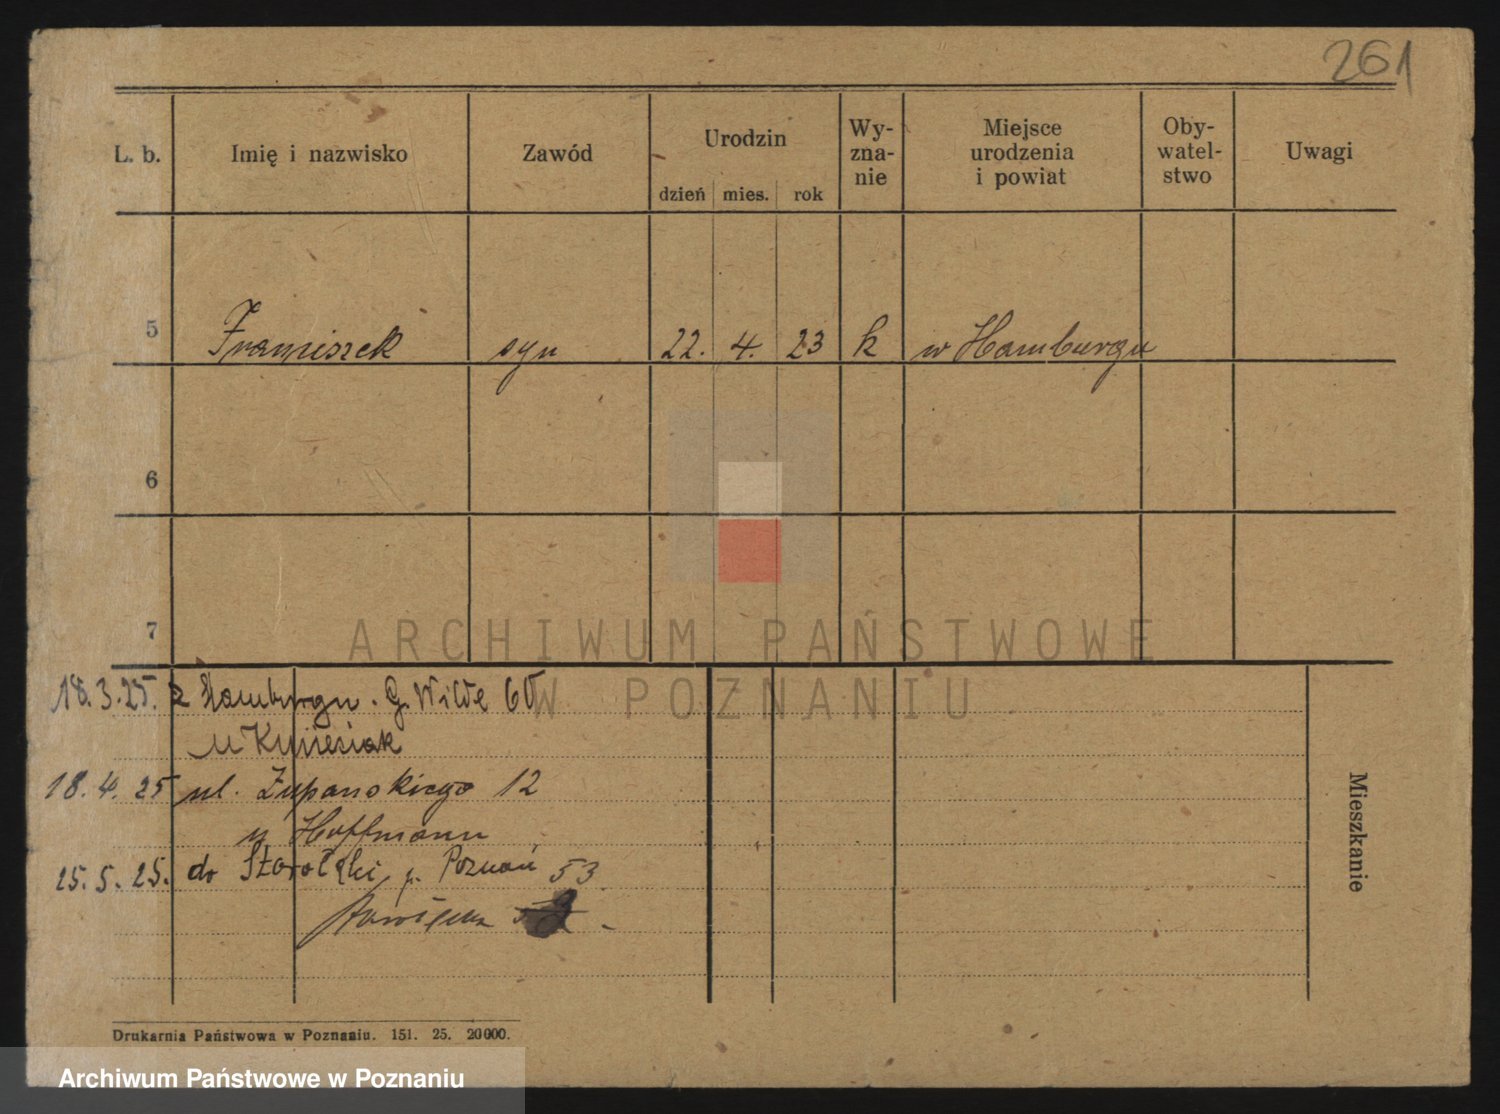 261
L. b. Imię i nazwisko Zawód Urodzin Wy-zna-nie Miejsce urodzenia i powiat Oby-watel-stwo Uwagi
dzień mies. rok
5 Franciszek syn 22. 4. 23 k w Hamburgu
6
7
ARCHIWUM PAŃSTWOWE
W POZNANIU
18.3.25. z Hamburgu. G. Wilde 60
u
18.4.25 ul. Żupańskiego 12
u Hoffmann
15.5.25. do Starołęki, p. Poznań 53
Mieszkanie
Drukarnia Państwowa w Poznaniu. 151. 25. 20000.
Archiwum Państwowe w Poznaniu